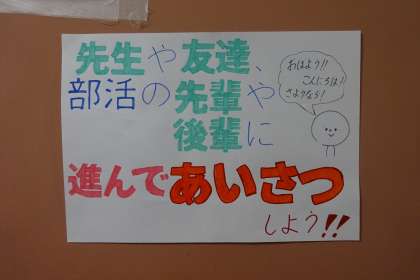 先生や友達、
部活の先輩や
後輩に
進んであいさつ
しよう!!
おはよう!!
こんにちは!
さようなら!